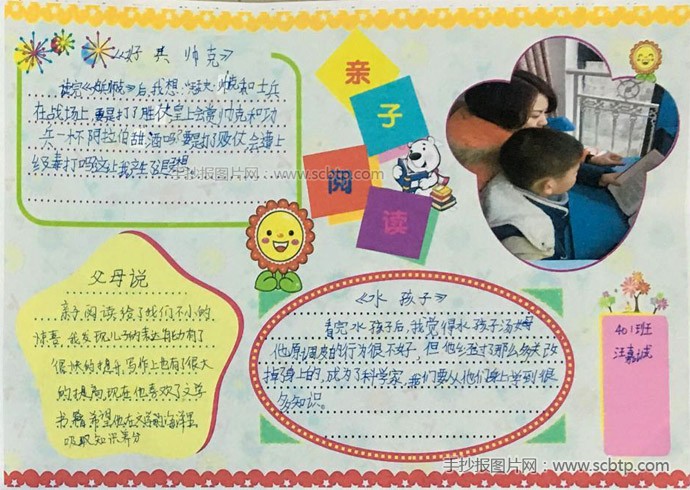 《好兵帅克》
读完《好兵帅克》后,我想
在战场上要是打了胜仗皇上会赏帅克和功
兵一杯阿拉伯甜酒吗?要是打了败仗会遭上
级毒打吗?这让我产生
亲
子
阅
读
父母说
亲子阅读给了我们不小的
惊喜,我发现儿子的表达能力有了
很快的提升,写作上也有了很大
的提高,现在他喜欢了文学
书籍,希望他在文学的海洋里
吸取知识养分
《水孩子》
看完水孩子后,我觉得水孩子汤姆
他原调皮的行为很不好,但他
掉了身上的,成为了科学家,我们要从他们身上学到很
多知识。
401班
汪嘉诚
手抄报图片网 www.scbtp.com
手抄报图片网:www.scbtp.com